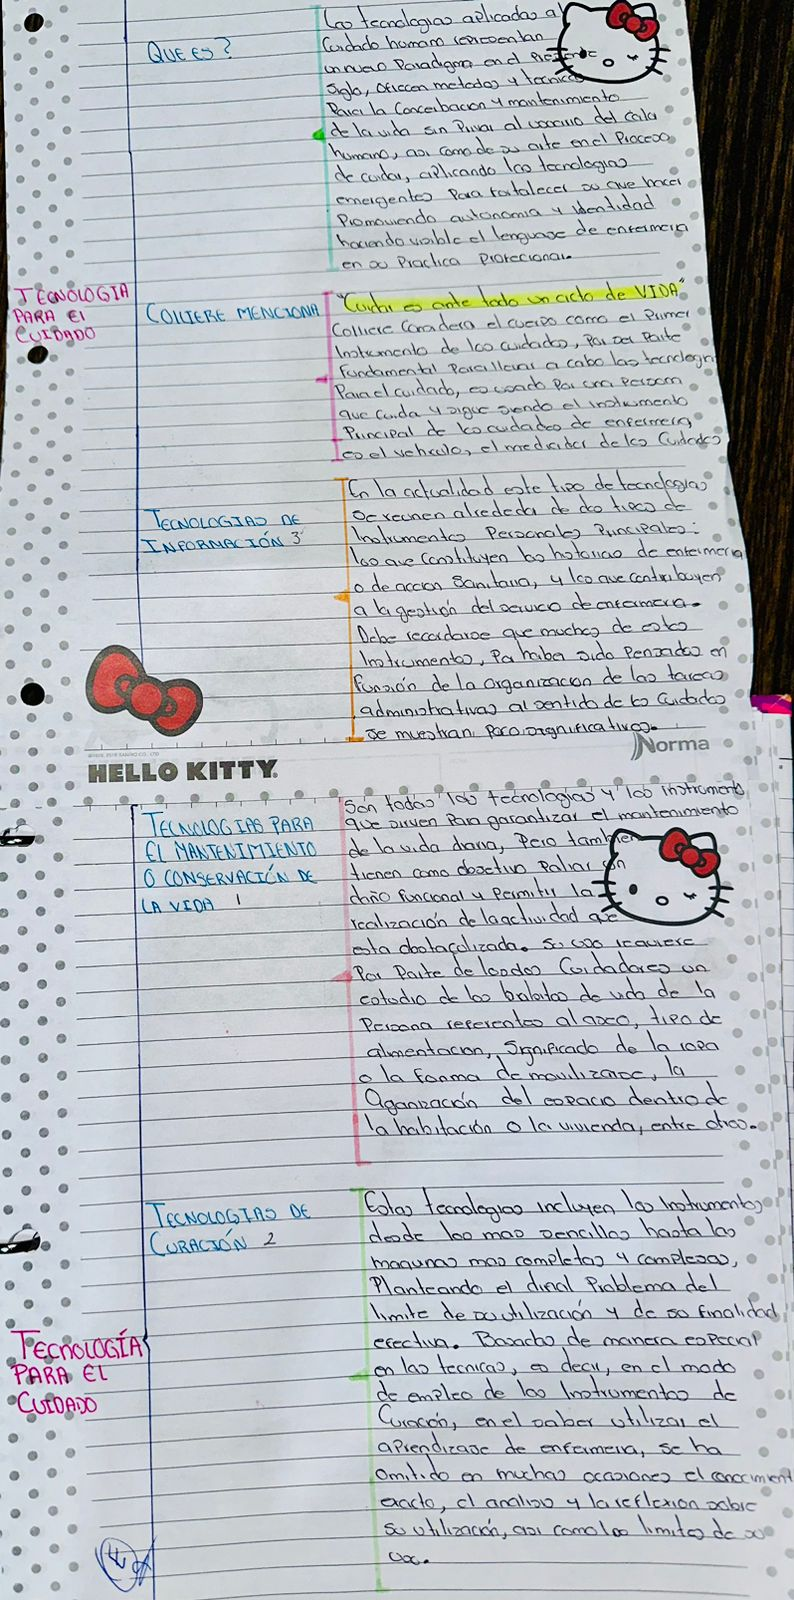 QUE ES?
Las tecnologias aplicadas al
Cuidado humano representan
un nuevo Paradigma en el Presente
Siglo, ofrecen metodos y tecnicas
Para la Concerbacion y mantenimiento
de la vida sin Privar al usuario del calor
humano, asi como de su arte en el Proceso
de cuidar, aplicando las tecnologias
emergentes Para fortalecer su que hacer
Promoviendo autonomia y Identidad
haciendo visible el lenguaje de enfermera
en su Practica Profecional.
TECNOLOGIA
PARA El
CUIDADO
COLLIERE MENCIONA
"Cuidar es ante todo un ciclo de VIDA"
Colliere Considera el cuerpo como el Primer
Instrumento de los cuidados, Por ser Parte
Fundamental Para llevar a cabo las tecnologi
Para el cuidado, es usado Por una Persona
que cuida y sigue siendo el instrumento
Principal de los cuidados de enfermera
es el vehiculo, el mediador de los Cuidados
TECNOLOGIAS DE
INFORMACIÓN 3
En la actualidad este tipo de tecnologias
Se reunen alrededor de dos tipos de
Instrumentos Personales Principales:
los que Constituyen los historias de enfermeria
o de accion Sanitaria, y los que contribuyen
a la gestión del servicio de enfermera.
Debe recordarse que muchos de estos
Instrumentos, Por haber sido Pensados en
función de la organizacion de las tareas
administrativas al sentido de los Cuidados
se muestran Poco significativos.
Norma
HELLO KITTY.
TECNOLOGIAS PARA
El MANTENIMIENTO
O CONSERVACIÓN DE
LA VIDA 1
Son todas las tecnologias y los instrumento
que sirven Para garantizar el mantenimiento
de la vida diaria, Pero tambien
tienen como objetivo Paliar un
daño funcional y Permitir la
realización de la actividad que
esta obstaculizada. Su uso requiere
Por Parte de los Cuidadores un
estudio de los habitos de vida de la
Persona referentes al aseo, tipo de
alimentacion, Significado de la ropa
o la forma de movilizarse, la
Oganización del espacio dentro de
la habitación o la vivienda, entre otros.
TECNOLOGIAS DE
CURACIÓN 2
Estas tecnologias incluyen los Instrumentos
desde los mas sencillos hasta las
maquinas mas completas y complejas,
Planteando el dificil Problema del
limite de su utilización y de su finalidad
efectiva. Basados de manera especial
en las tecnicas, es decir, en el modo
de empleo de los Instrumentos de
Curación, en el saber utilizar el
aprendizaje de enfermera, se ha
omitido en muchas ocasiones el conocimient
exacto, el analisis y la reflexion sobre
su utilización, asi como los limites de su
uso.
TECNOLOGÍA
PARA EL
CUIDADO